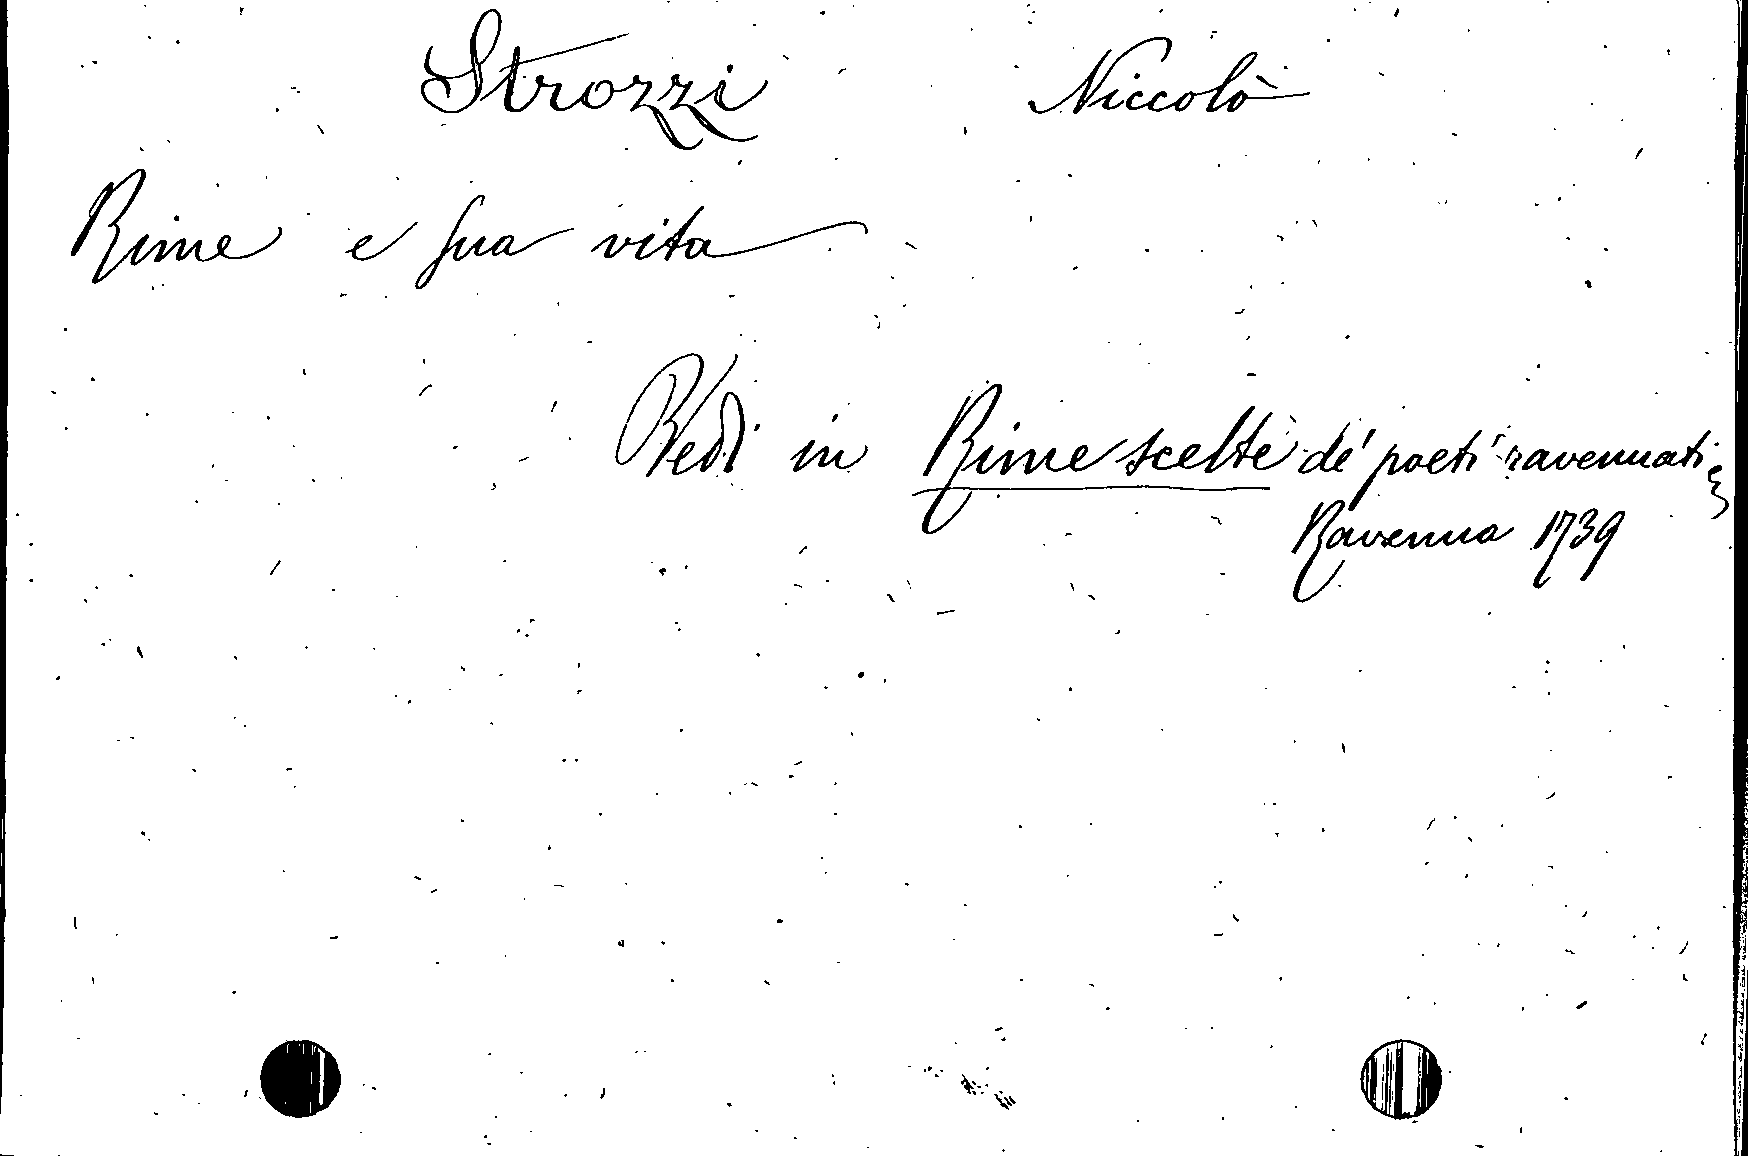 Strozzi Niccolò
Rime e sua vita
Vedi in Rime scelte de' poeti ravennati
Ravenna 1739